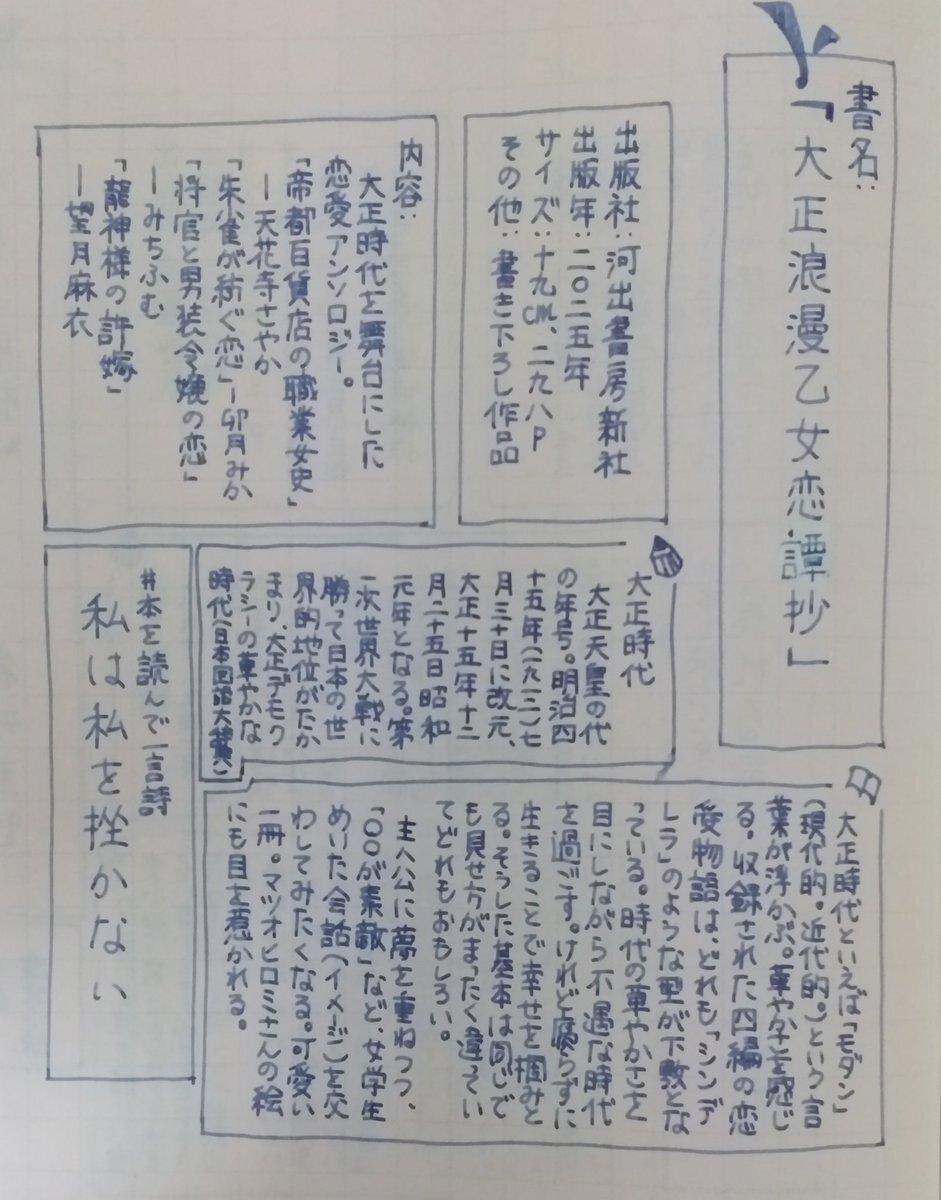 書名:
「大正浪漫乙女恋譚抄」
出版社:河出書房新社
出版年:二〇二五年
サイズ:十九cm、二九八P
その他:書き下ろし作品
内容:
大正時代を舞台にした
恋愛アンソロジー。
「帝都百貨店の職業女史」
ー天花寺さやか
「朱雀が紡ぐ恋」ー卯月みか
「将官と男装令嬢の恋」
ーみちふむ
「龍神様の許嫁」
ー望月麻衣
大正時代
大正天皇の代
の年号。明治四
十五年(一九一二)七
月三十日に改元、
大正十五年十二
月二十五日昭和
元年となる。第
一次世界大戦に
勝って日本の世
界的地位がたか
まり、大正デモク
ラシーの華やかな
時代(日本国語大辞典)
大正時代といえば「モダン」
(現代的。近代的。)という言
葉が浮かぶ。華やかさを感じ
る。収録された四編の恋
愛物語は、どれも「シンデ
レラ」のような型が下敷とな
っている。時代の華やかささ
目にしながら不遇な時代
を過ごす。けれど腐らずに
生きることで幸せを掴みと
る。そうした基本は同じで
も見せ方がまったく違ってい
てどれもおもしろい。
主人公に夢を重ねつつ、
「〇〇が素敵」など、女学生
めいた会話(イメージ)を交
わしてみたくなる。可愛い
一冊。マツオヒロミさんの絵
にも目を惹かれる。
#本を読んで一言詩
私は私を挫かない